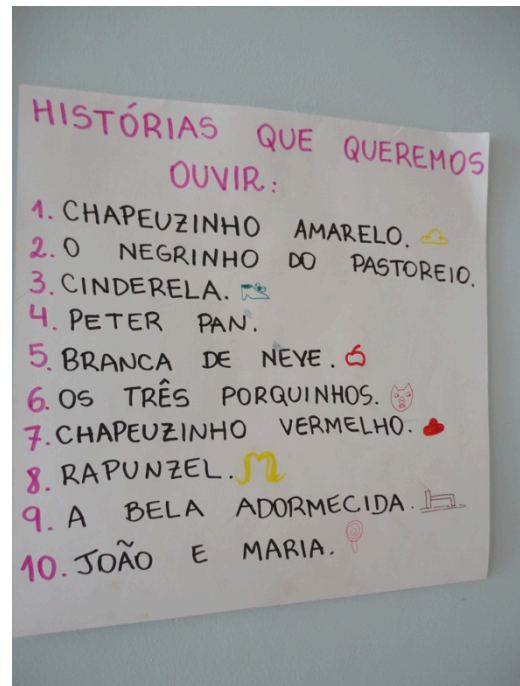 HISTÓRIAS QUE QUEREMOS
OUVIR:
1. CHAPEUZINHO AMARELO.
2. O NEGRINHO DO PASTOREIO.
3. CINDERELA.
4. PETER PAN.
5. BRANCA DE NEVE.
6. OS TRÊS PORQUINHOS.
7. CHAPEUZINHO VERMELHO.
8. RAPUNZEL.
9. A BELA ADORMECIDA.
10. JOÃO E MARIA.